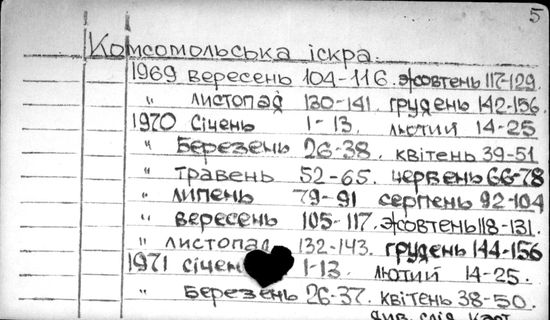 5
Комсомольська іскра.
1969 вересень 104-116. жовтень 117-129.
" листопад 130-141. грудень 142-156.
1970 Січень 1-13. лютий 14-25
" Березень 26-38. квітень 39-51
" травень 52-65. червень 66-78
" липень 79-91 серпень 92-104
" вересень 105-117. жовтень 118-131.
" листопад 132-143. грудень 144-156
1971 1-13. лютий 14-25.
" Березень 26-37. квітень 38-50.
див. слід. карт